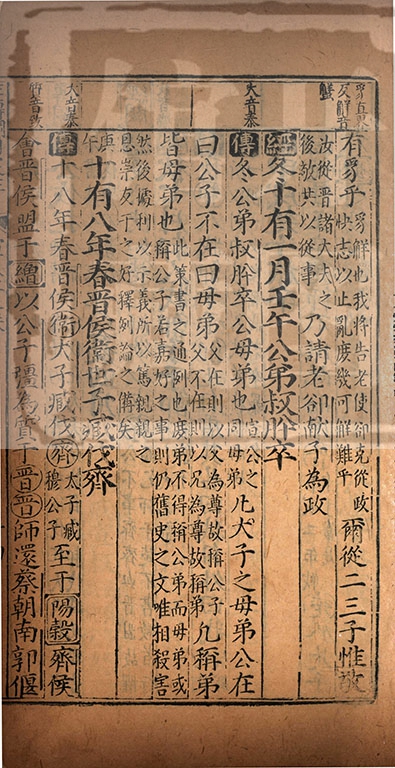 豸直
反解音
蟹
大音泰
大音泰
質音致
有豸乎豸解也我將告老使郤克從政快志以止亂庶幾可解難平爾從二三子惟敬
汝從晉諸大夫之後敬共以從事乃請老郤獻子為政
經冬十有一月壬午公弟叔肸卒
傳冬公弟叔肸卒公母弟也宣公之同母弟凡大子之母弟公在
曰公子不在曰母弟父在則以父為尊故稱公子父不在則以兄為尊故稱弟凡稱弟
皆母弟也此策書之通例也庶弟不得稱公弟而母弟或稱公子若嘉好之事則仍舊史之文唯相殺害
然後據利以示義所以篤親親之恩崇友于之好釋例論之備矣
庚午十有八年春晉侯衛世子臧伐齊
傳十八年春晉侯衛大子臧伐齊太子臧穆公子至于陽穀齊侯
會晉侯盟于繒以公子彊為質于晉晉師還蔡朝南郭偃